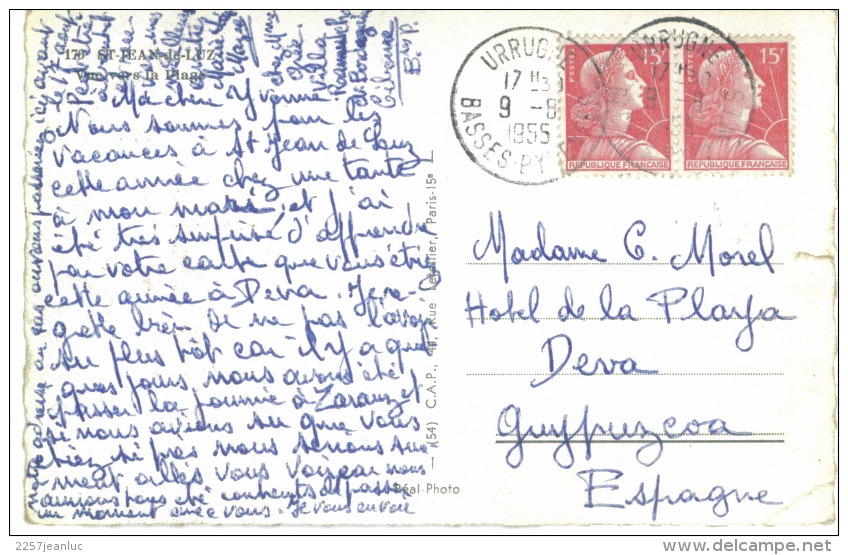 176 ST-JEAN-de-LUZ
Vue vers la Plage
Ma chère Yvonne
Nous sommes pour les
vacances à St Jean de Luz
cette année chez une tante
à mon mari, et j'ai
été très surprise d'apprendre
par votre carte que vous étiez
cette année à Deva. Je re-
gette bien de ne pas l'avoir
su plus tôt car il y a quel
ques jours, nous avons été
passer la journée à Zarauz et
si nous avions su que vous
étiez si près nous serions sûre
ment allés vous voir car nous
aurions tous été contents de passer
un moment avec vous. Je vous envoie
notre adresse au cas où vous passeriez ici avant
Villa
Bip.
(54) C.A.P., Rue Paris-15e
Réal-Photo
URRUGNE
17 H3
9 -8
1955
BASSES-PY
URRUGNE
POSTES
15F
REPUBLIQUE FRANÇAISE
POSTES
15F
REPUBLIQUE FRANÇAISE
Madame C. Morel
Hotel de la Playa
Deva
Guypuzcoa
Espagne
2257jeanluc
www.delcampe.net